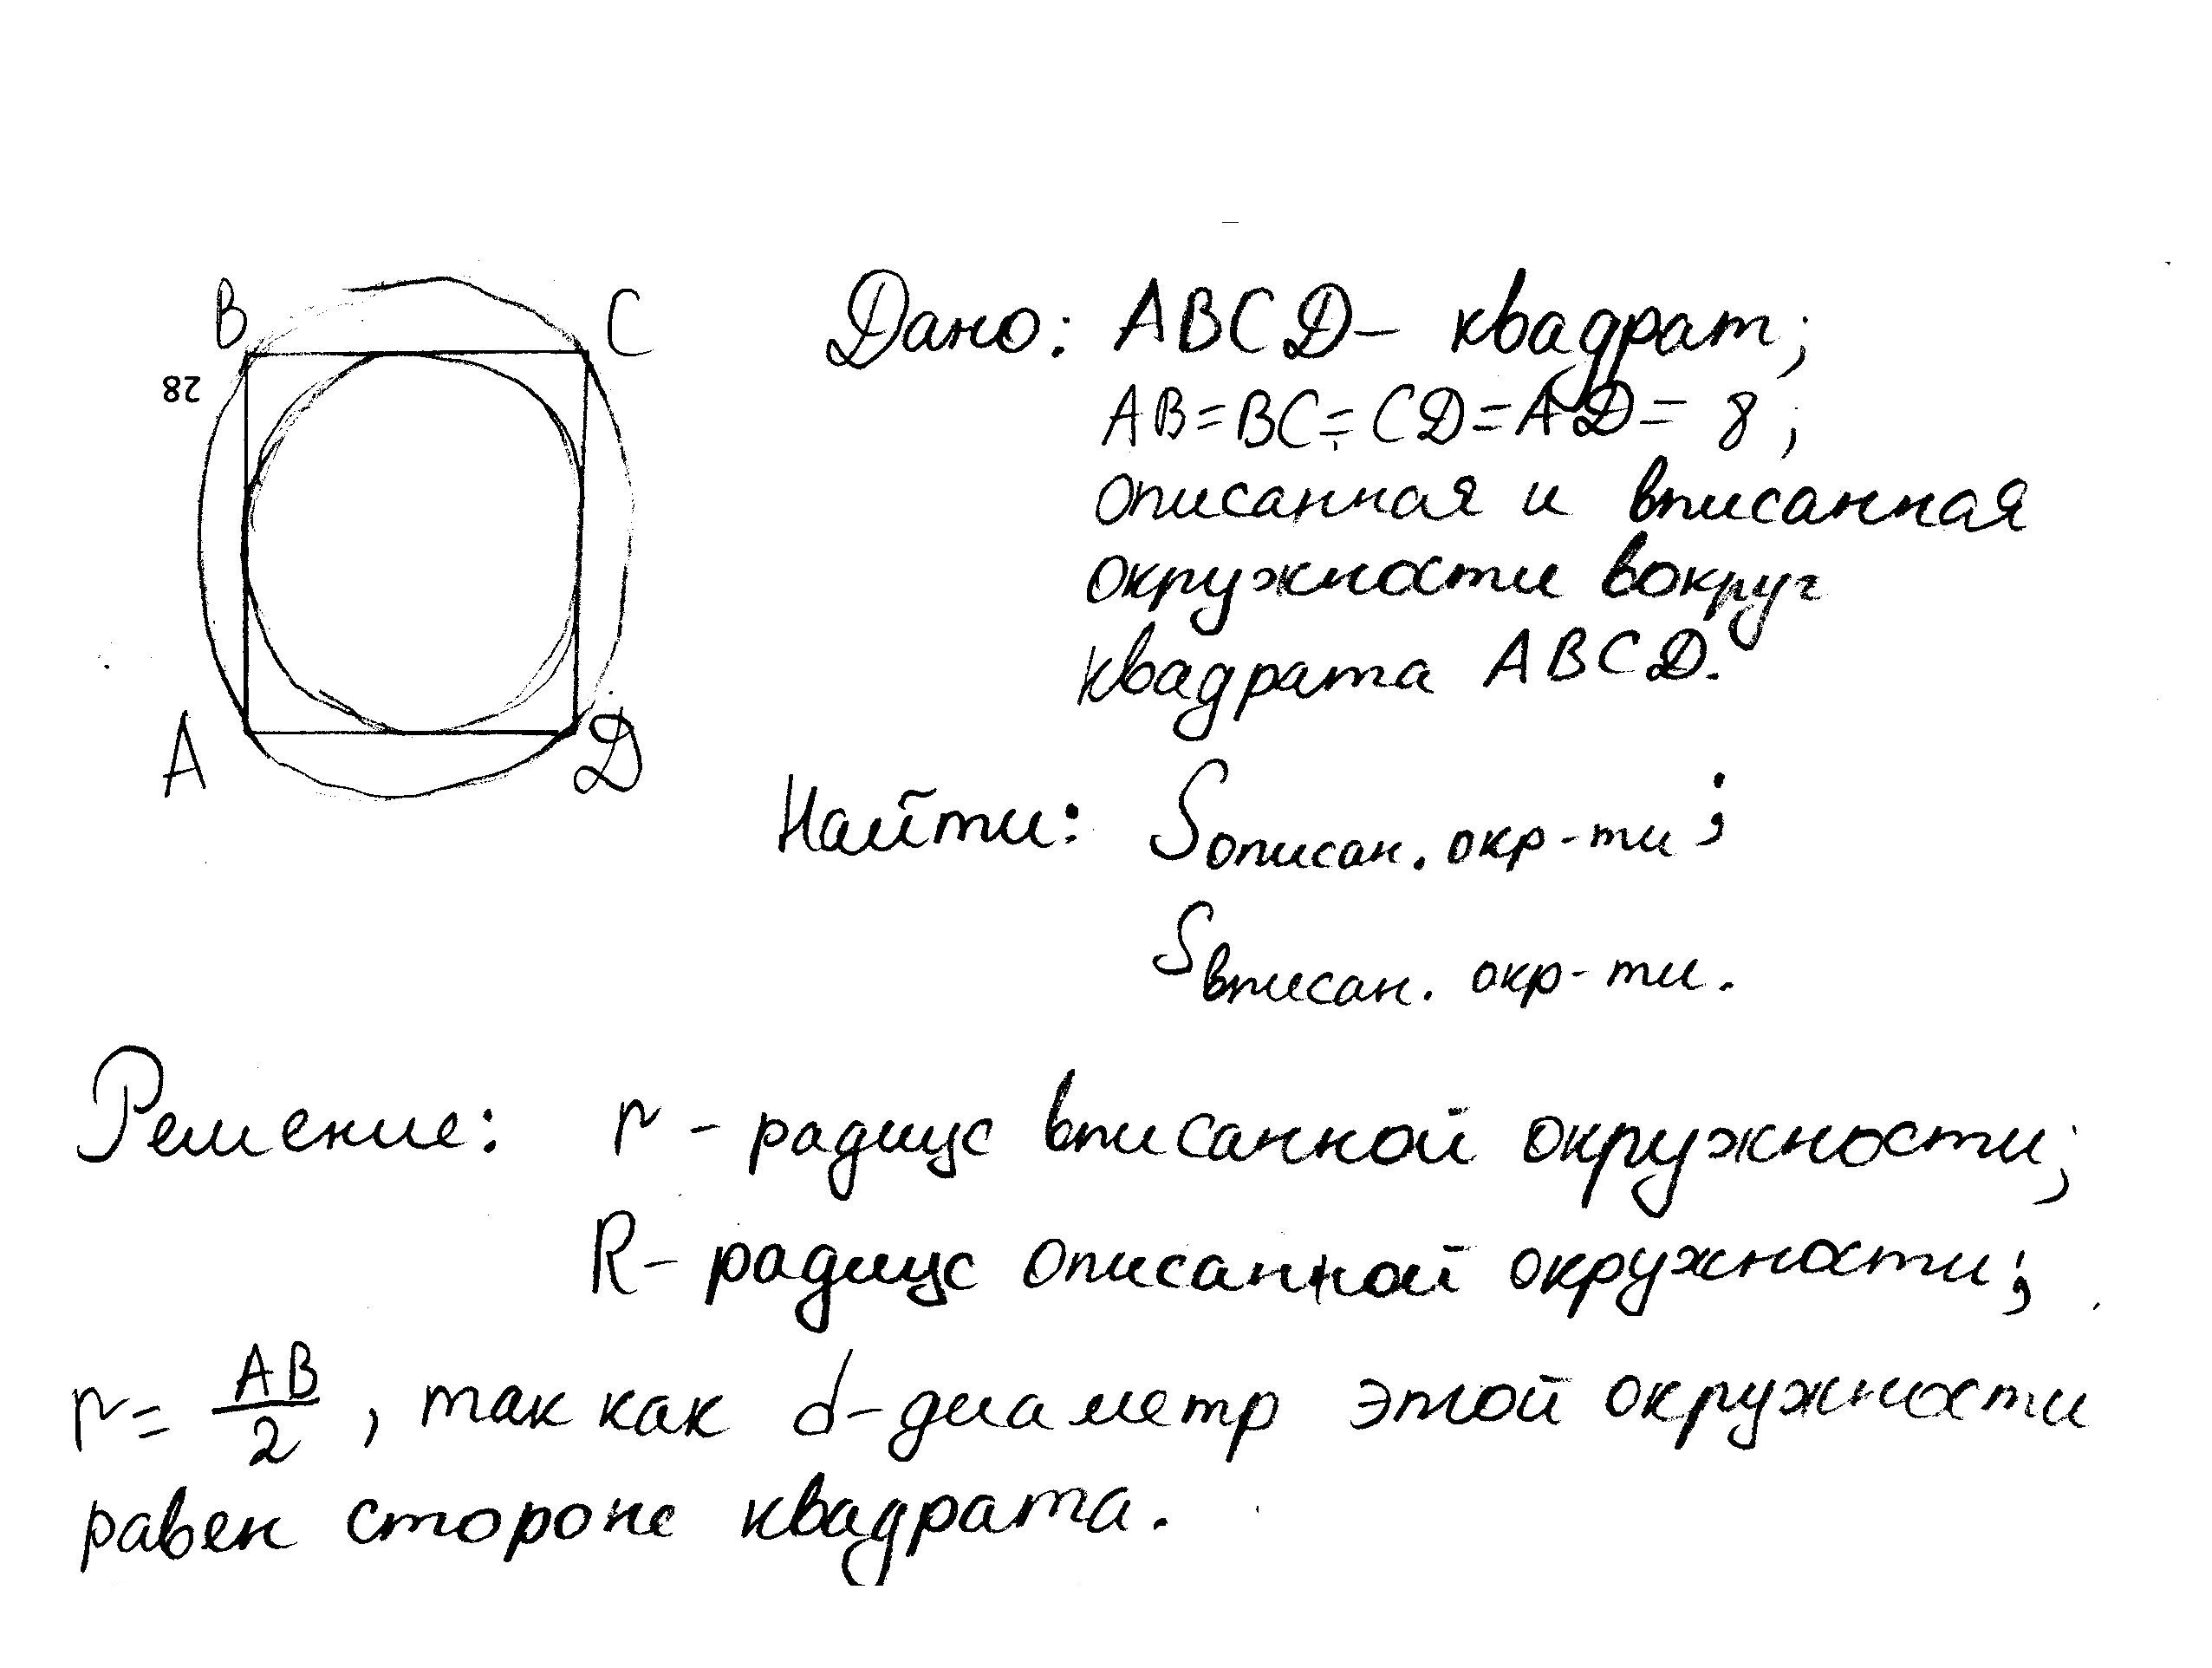 B
C
28
A
D
Дано: ABCD – квадрат;
AB=BC=CD=AD= 8;
описанная и вписанная
окружности вокруг
квадрата ABCD.
Найти: Sописан. окр-ти;
Sвписан. окр-ти.
Решение: r - радиус вписанной окружности;
R - радиус описанной окружности;
r = AB/2, так как d - диаметр этой окружности
равен стороне квадрата.